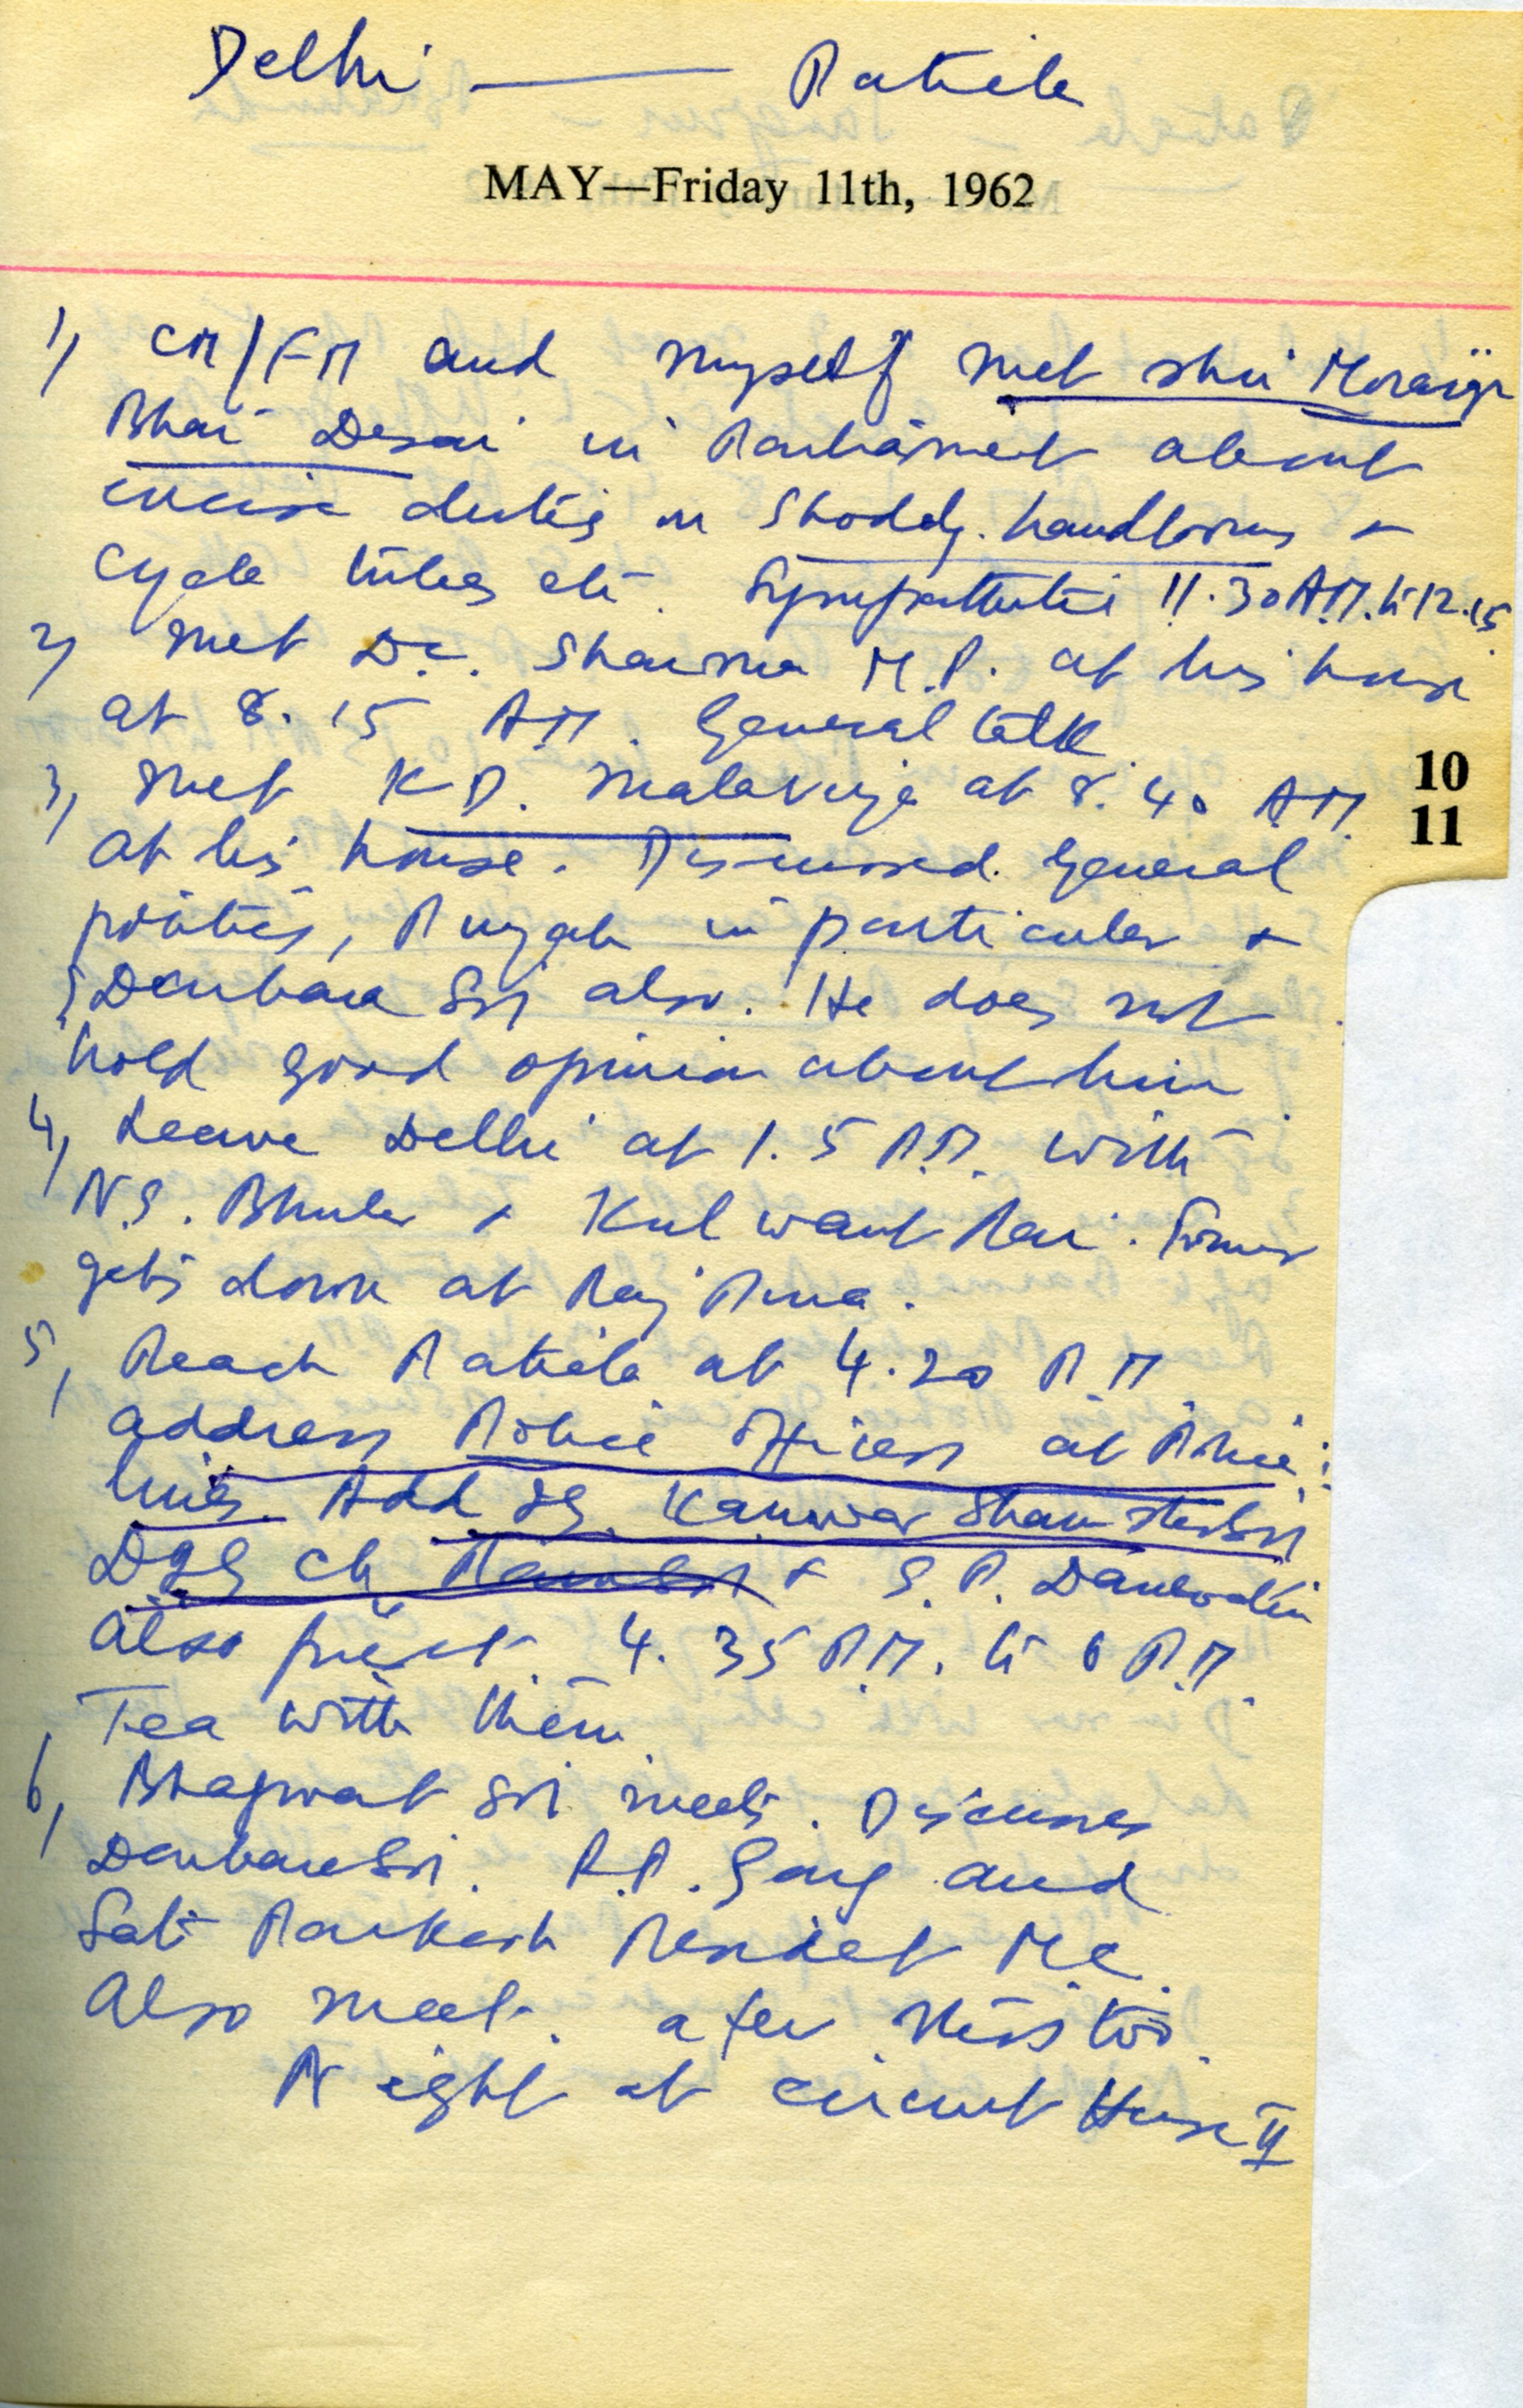 Delhi — Patiala
MAY—Friday 11th, 1962
1) CM/FM and myself met Shri Morarji
Bhai Desai in Parliament about
excise duties on Shoddy. handlooms +
Cycle tubes etc. Sympathetic 11.30 A.M. to 12.15
2) Met Dr. Sharma M.P. at his house
at 8.15 A.M. General talk
3) Met K.D. Malaviya at 8.40 A.M.
at his house. Discussed General
politics, Punjab in particular +
Darbara Sn also. He does not
hold good opinion about him
4) Leave Delhi at 1.5 P.M. with
N.S. Bhuler + Kulwant Rai. Former
gets down at Raj Pura.
5) Reach Patiala at 4.20 P.M.
address Police Officers at Police
lines. Add IG. Kanwar Sham
DIG Ch Ram Sn + S.P.
also present. 4.35 P.M. to 6 P.M.
Tea with them
6) Bhagwat Sn meets. Discusses
Darbara Sn. P.P. Garg and
Sat Parkash President M.C.
Also meet. a few visitors.
Night at circuit House II
10
11